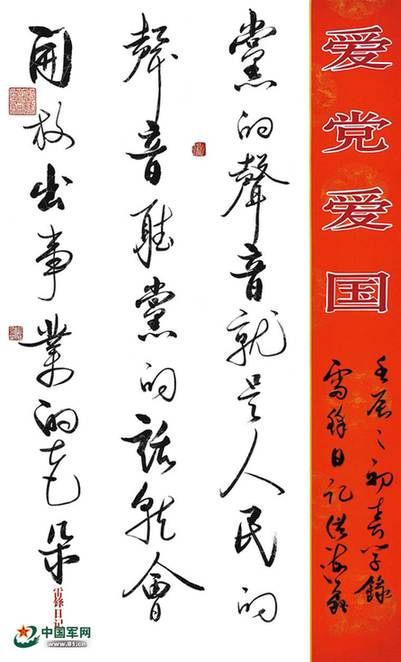 爱党爱国
壬辰之初春节録
雷锋日记
黨的聲音就是人民的
聲音聽黨的話就會
開放出事業的花朵
雷鋒日記
中国军网
www.81.cn